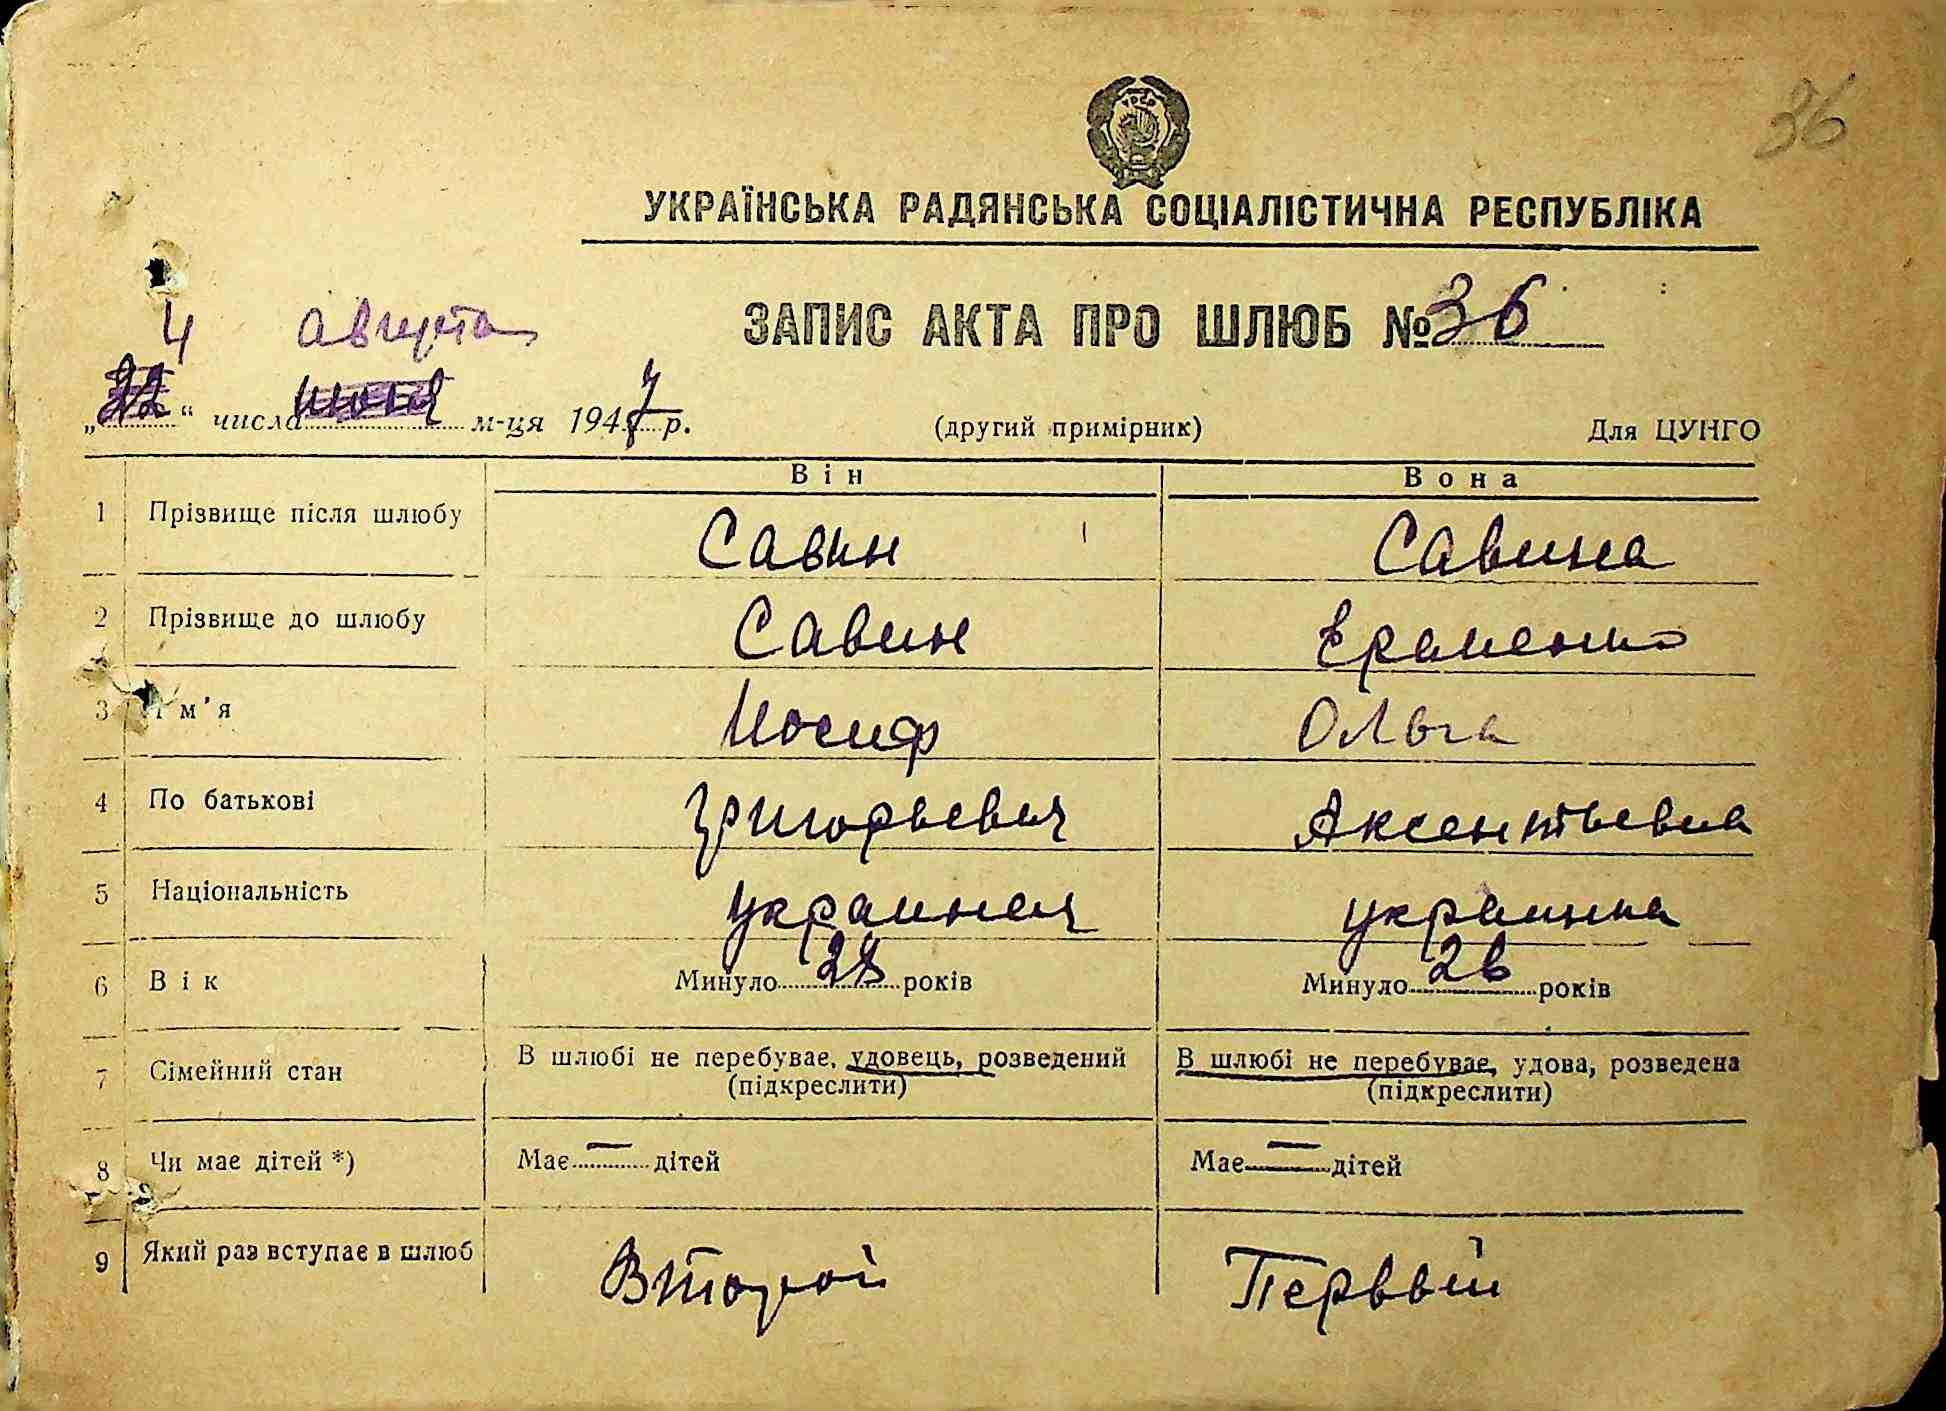 36
УРСР
УКРАЇНСЬКА РАДЯНСЬКА СОЦІАЛІСТИЧНА РЕСПУБЛІКА
ЗАПИС АКТА ПРО ШЛЮБ №36
4 августа
„22“ числа июля м-ця 1947 р.
(другий примірник)
Для ЦУНГО
Він Вона
1 Прізвище після шлюбу Савин Савина
2 Прізвище до шлюбу Савин
3 Ім'я Иосиф Ольга
4 По батькові Григорьевич Аксентьевна
5 Національність украинец украинка
6 Вік Минуло 28 років Минуло 26 років
7 Сімейний стан В шлюбі не перебуває, удовець, розведений (підкреслити) В шлюбі не перебуває, удова, розведена (підкреслити)
8 Чи має дітей *) Має — дітей Має — дітей
9 Який раз вступає в шлюб Второй Первый